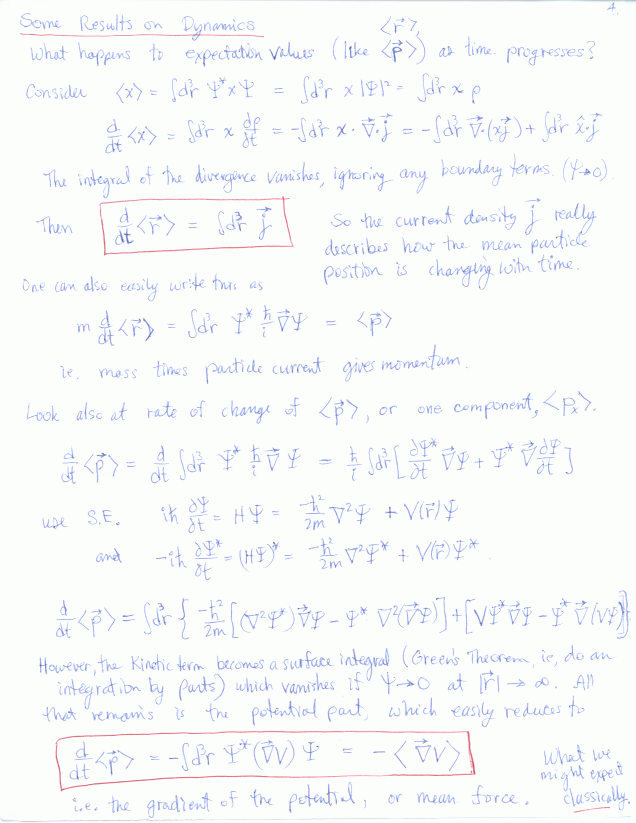 4.
Some Results on Dynamics
What happens to expectation values (like ⟨r⃗⟩, ⟨p⃗⟩) as time progresses?
Consider ⟨x⟩ = ∫d³r Ψ* x Ψ = ∫d³r x |Ψ|² = ∫d³r x ρ
d/dt ⟨x⟩ = ∫d³r x dρ/dt = -∫d³r x · ∇⃗·j⃗ = -∫d³r ∇⃗·(x j⃗) + ∫d³r x̂·j⃗
The integral of the divergence vanishes, ignoring any boundary terms. (Ψ→0)
Then d/dt ⟨r⃗⟩ = ∫d³r j⃗
So the current density j⃗ really
describes how the mean particle
position is changing with time.
One can also easily write this as
m d/dt ⟨r⃗⟩ = ∫d³r Ψ* ħ/i ∇⃗Ψ = ⟨p⃗⟩
ie. mass times particle current gives momentum.
Look also at rate of change of ⟨p⃗⟩, or one component, ⟨pₓ⟩.
d/dt ⟨p⃗⟩ = d/dt ∫d³r Ψ* ħ/i ∇⃗Ψ = ħ/i ∫d³r [∂Ψ*/∂t ∇⃗Ψ + Ψ* ∇⃗ ∂Ψ/∂t]
use S.E. iħ ∂Ψ/∂t = HΨ = -ħ²/2m ∇²Ψ + V(r⃗)Ψ
and -iħ ∂Ψ*/∂t = (HΨ)* = -ħ²/2m ∇²Ψ* + V(r⃗)Ψ*.
d/dt ⟨p⃗⟩ = ∫d³r { -ħ²/2m [(∇²Ψ*)∇⃗Ψ - Ψ* ∇²(∇⃗Ψ)] + [VΨ*∇⃗Ψ - Ψ*∇⃗(VΨ)] }
However, the Kinetic term becomes a surface integral (Green's Theorem, ie, do an
integration by parts) which vanishes if Ψ→0 at |r⃗|→∞. All
that remains is the potential part, which easily reduces to
d/dt ⟨p⃗⟩ = -∫d³r Ψ*(∇⃗V)Ψ = -⟨∇⃗V⟩
What we
might expect
classically.
i.e. the gradient of the potential, or mean force.